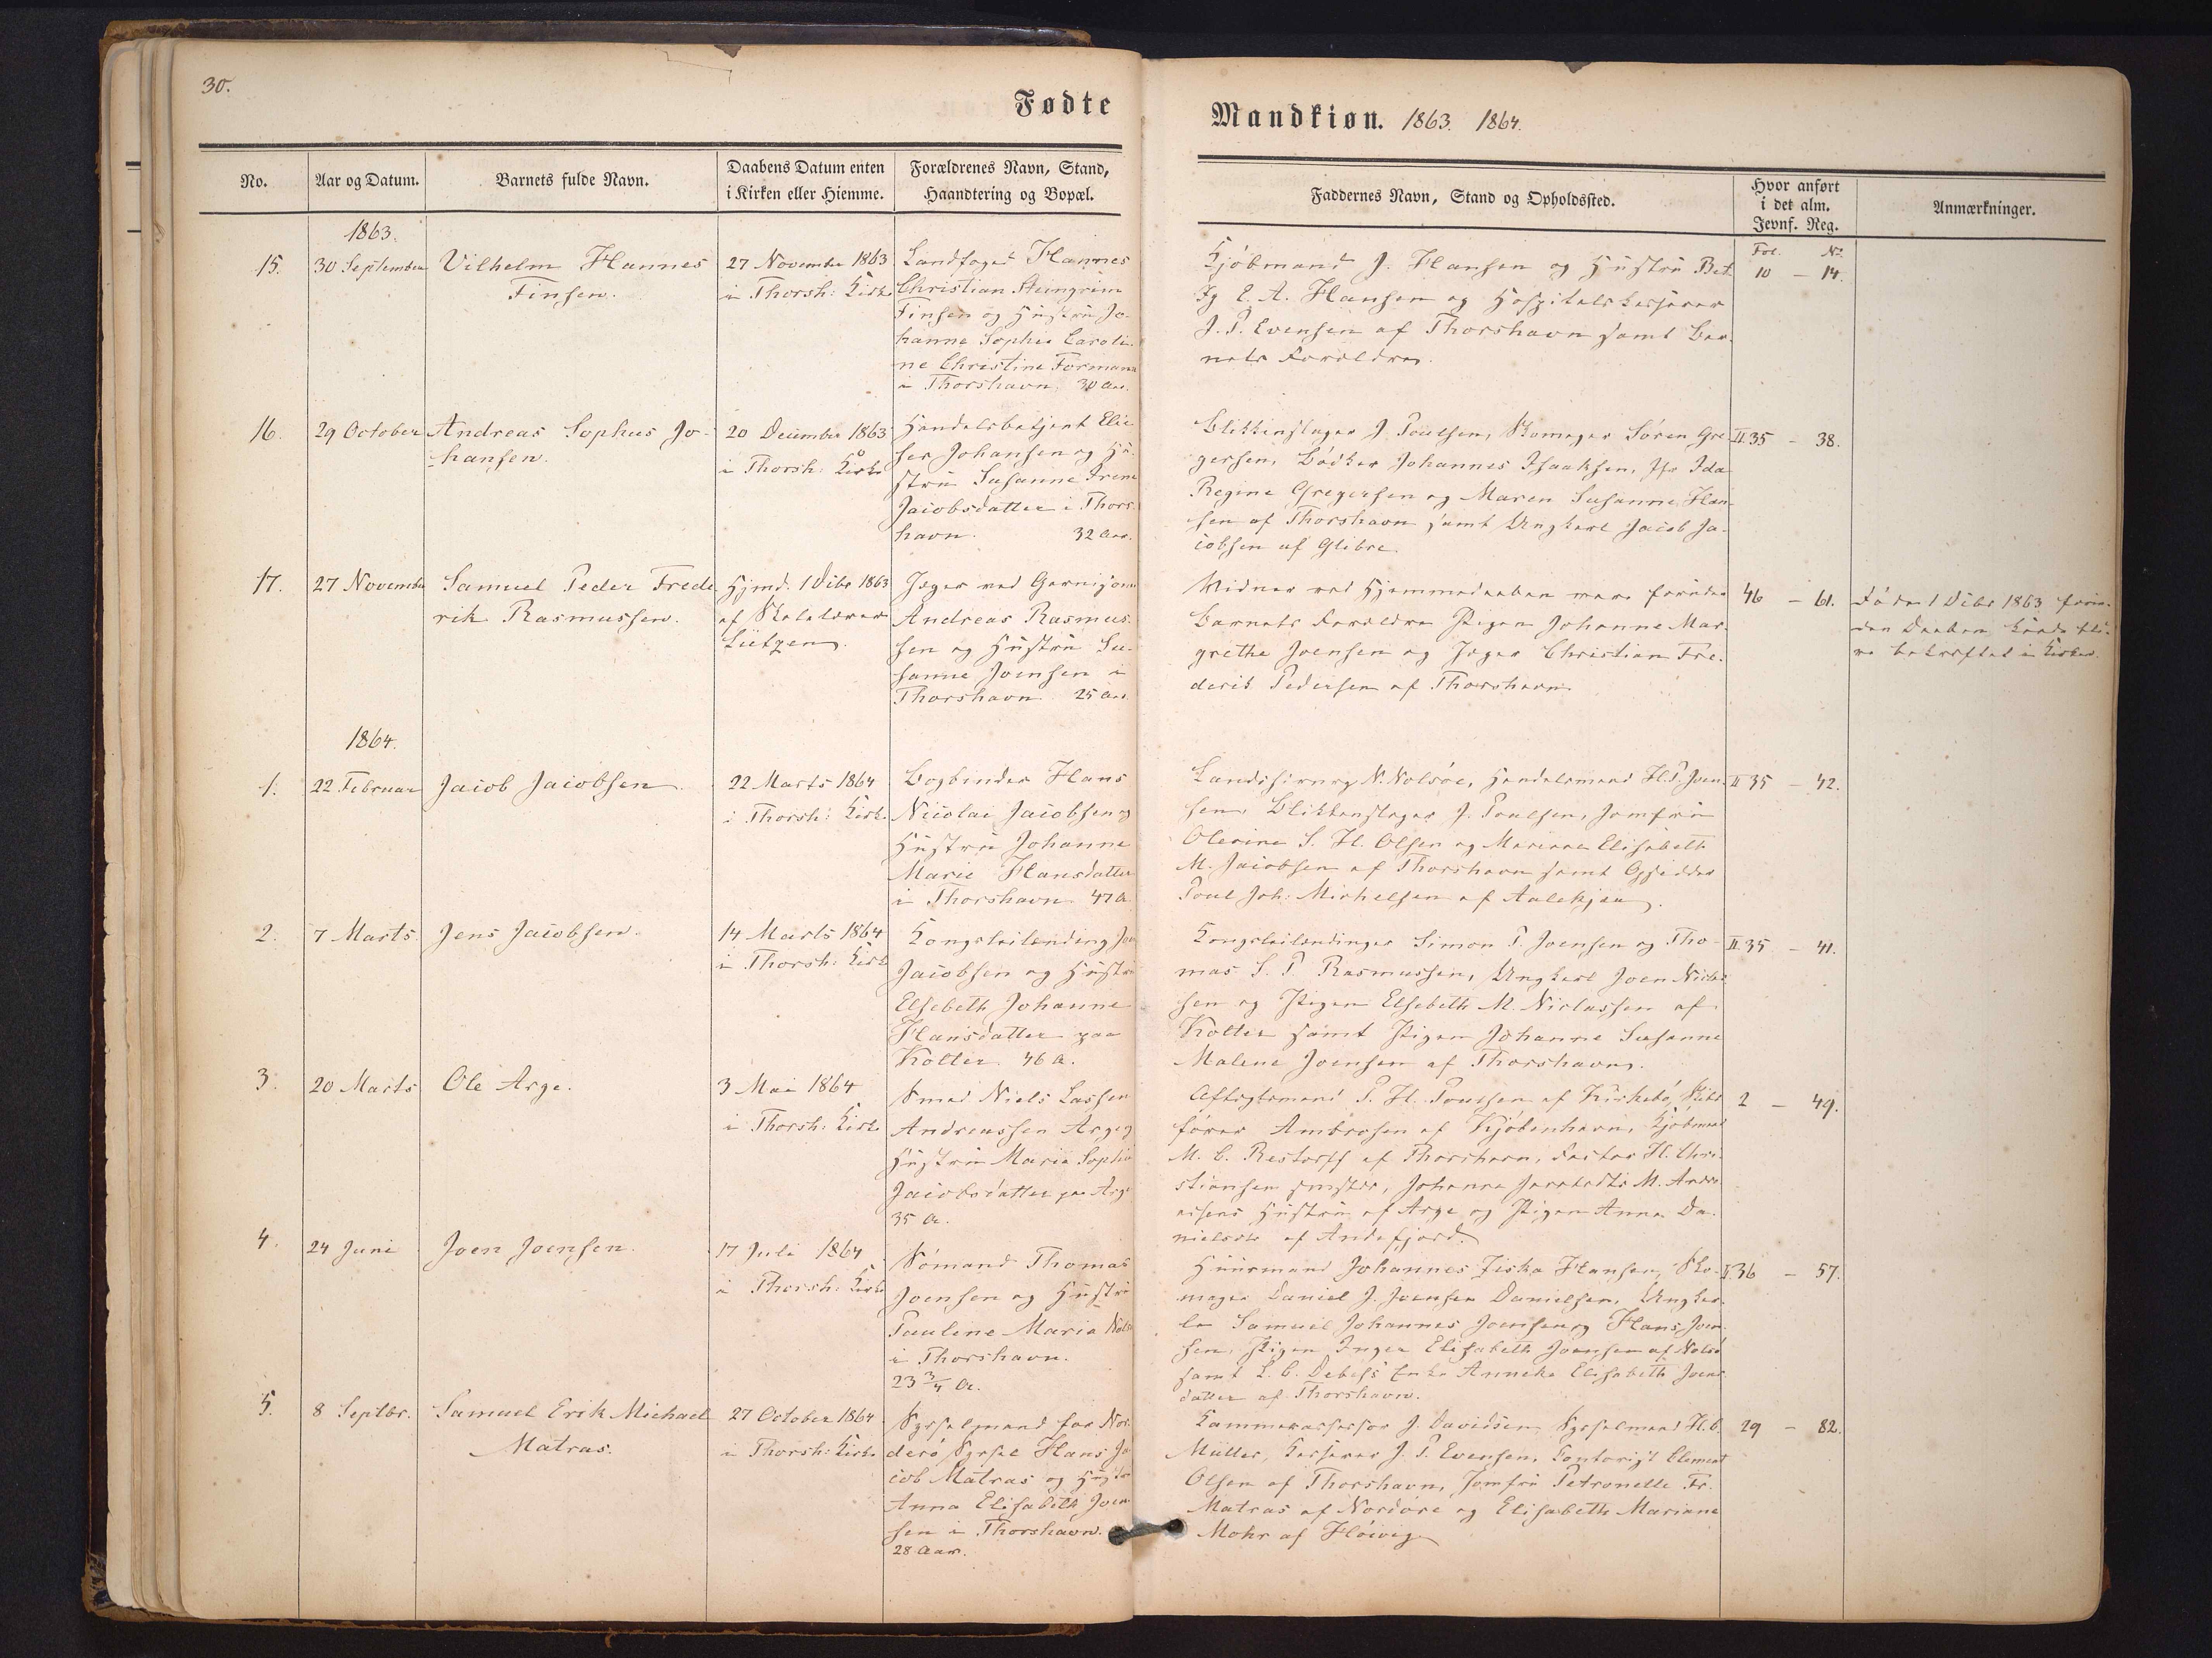 30.
Fødte
Mandkiøn. 1863. 1864.
No.
Aar og Datum.
Barnets fulde Navn.
Daabens Datum enten
i Kirken eller Hiemme.
Forældrenes Navn, Stand,
Haandtering og Bopæl.
Faddernes Navn, Stand og Opholdssted.
Hvor anført
i det alm.
Jevnf. Reg.
Anmærkninger.
1863.
15.
30 September
Vilhelm Hannes
Finsen.
27 November 1863
i Thorsh: Kirke
Landfoged Hannes
Christian Steingrim
Finsen og Hustru Jo-
hanne Sophie Caroli-
ne Christine Formann
i Thorshavn. 30 Aar.
Kjöbmand J. Hansen og Hustru
E. A. Hansen og Hospitalskasserer
J. P. Evensen af Thorshavn samt Bar-
nets Forældre.
Fol. No.
10 - 14.
16.
29 October
Andreas Sophus Jo-
hansen.
20 December 1863
i Thorsh: Kirke
Handelsbetjent Elie-
ser Johansen og Hu-
stru Susanne Irene
Jacobsdatter i Thors-
havn. 32 Aar.
Blikkenslager J. Poulsen, Skomager Sören Gre-
gersen, Bödker Johannes Isaaksen, Jfr Ida
Regine Gregersen og Maren Susanne Han-
sen af Thorshavn samt Ungkarl Jacob Ja-
cobsen af Glibre.
II 35 - 38.
17.
27 November
Samuel Peder Frede-
rik Rasmussen.
Hjmd. 1 Dcbr 1863
af Skolelærer
Lützen.
Jæger ved Garnisonen
Andreas Rasmus-
sen og Hustru Su-
sanne Joensen i
Thorshavn 25 Aar.
Vidner ved Hjemmedaaben vare foruden
Barnets Forældre Pigen Johanne Mar-
grethe Joensen og Jæger Christian Fre-
derik Pedersen af Thorshavn.
46 - 61.
Döde 1 Dcbr 1863 foren-
den Daaben kunde bli-
ve bekræftet i Kirken.
1864.
1.
22 Februar
Jacob Jacobsen.
22 Marts 1864
i Thorsh: Kirke
Bogbinder Hans
Nicolai Jacobsen og
Hustru Johanne
Marie Hansdatter
i Thorshavn. 47 A.
Landschirurg N. Nolsöe, Handelsmand H. P. Joen-
sen, Blikkenslager J. Poulsen, Jomfru
Olevine S. H. Olsen og Mariane Elisabeth
M. Jacobsen af Thorshavn samt
Poul Joh: Michelsen af
II 35 - 42.
2.
7 Marts
Jens Jacobsen.
14 Marts 1864
i Thorsh: Kirke
Kongsleilænding
Jacobsen og Hustru
Elsebeth Johanne
Hansdatter paa
Kolter. 46 A.
Kongsleilændinger Simon P. Joensen og Tho-
mas S. P. Rasmussen, Ungkarl Joen
sen og Pigen Elsebeth M. Niclassen af
Kolter samt Pigen Johanne Susanne
Malene Joensen af Thorshavn.
II 35 - 41.
3.
20 Marts
Ole Arge.
3 Mai 1864
i Thorsh: Kirke
Smed Niels Lassen
Andreassen Arge og
Hustru Maria Sophie
Jacobsdatter paa Arge
35 A.
Aftægtsmand P. H. Poulsen af Kirkebö, Skibs-
förer Ambrosen af Kjöbenhavn, Kjöbmand
M. C. Restorff af Thorshavn, H. Chri-
stiansen Johanne M. Andre-
asens Hustru af Arge og Pigen Anna Da-
nielsdtr af Andefjord.
2 - 49.
4.
24 Juni
Joen Joensen.
17 Juli 1864
i Thorsh: Kirke
Sömand Thomas
Joensen og Hustru
Pauline Maria
i Thorshavn.
23 3/4 A.
Huusmand Johannes Ziska Hansen, Sko-
mager Daniel J. Joensen Danielsen, Ungkar-
le Samuel Johannes Joensen og Hans Joen-
sen, Pigen Inger Elisabeth Joensen af Nolsö
samt L. C. Debess' Enke Anneke Elisabeth Joens-
datter af Thorshavn.
II 36 - 57.
5.
8 Septbr.
Samuel Erik Michael
Matras.
27 October 1864
i Thorsh: Kirke
Sysselmand for Nor-
derö Syssel Hans Ja-
cob Matras og Hustru
Anna Elisabeth Joen-
sen i Thorshavn.
28 Aar.
Kammerassessor J. Davidsen, Sysselmand H. C.
Müller, Kasserer J. P. Evensen, Contorist Clement
Olsen af Thorshavn, Jomfru Petronelle Fr.
Matras af Nordöre og Elisabeth Mariane
Mohr af Höivig
29 - 82.